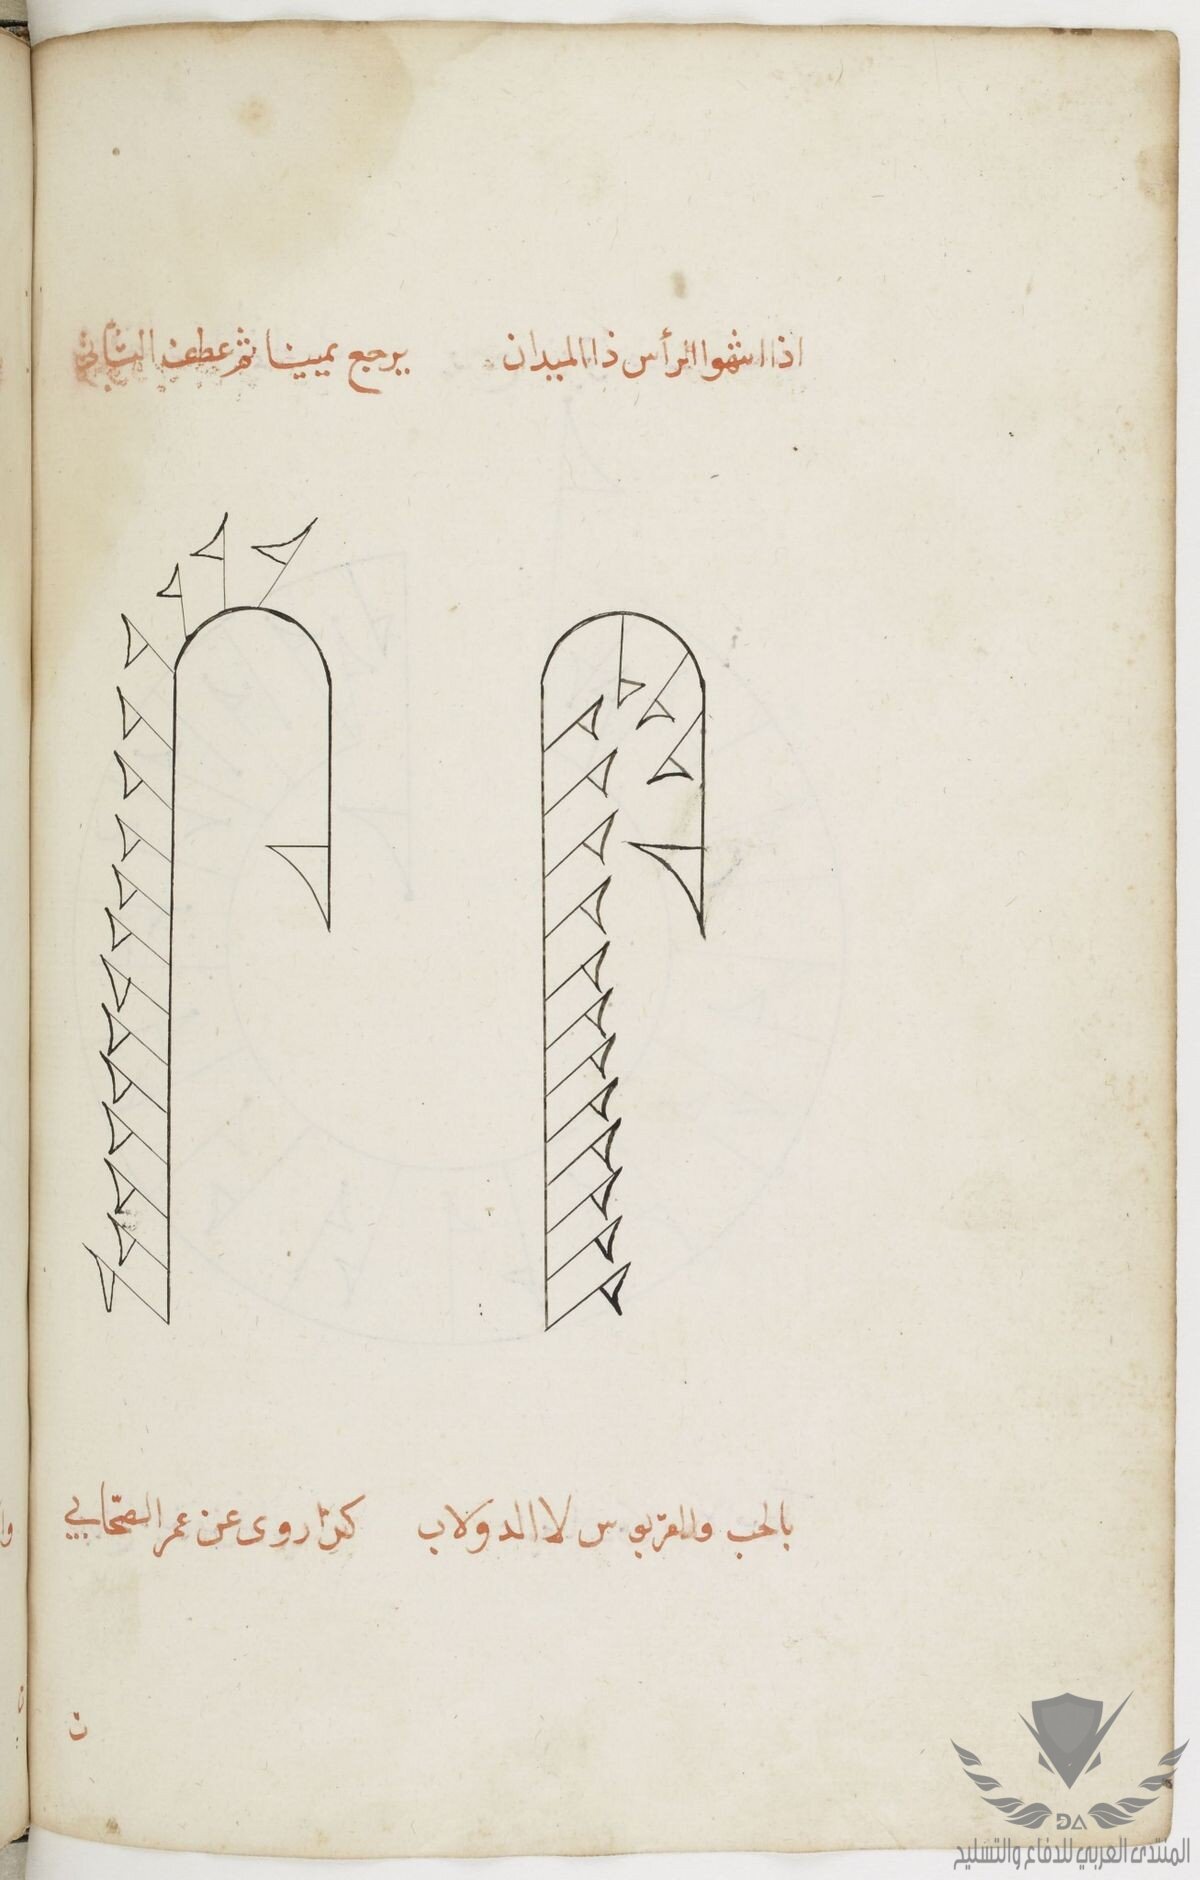 اذا انتهوا الرأس ذا الميدان يرجع يمينا ثم عطف الثاني
بالخب والقربوس لا الدولاب كذا روى عن عمر الصحابي
ن
المنتدى العربي للدفاع والتسليح